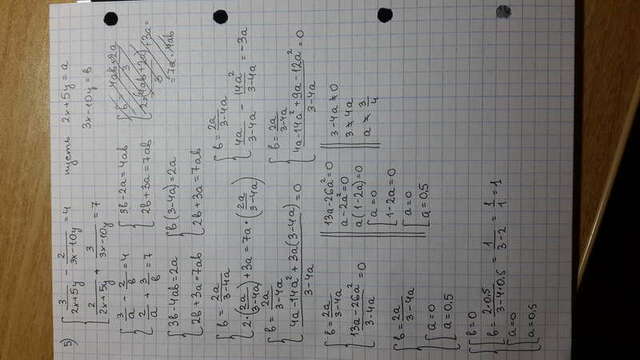 5) { 3/(2x+5y) - 2/(3x-10y) = 4
{ 2/(2x+5y) + 3/(3x-10y) = 7
пусть 2x+5y = a
3x-10y = b
{ 3/a - 2/b = 4
{ 2/a + 3/b = 7
{ 3b-2a = 4ab
{ 2b+3a = 7ab
{ 3b-4ab = 2a
{ 2b+3a = 7ab
{ b(3-4a) = 2a
{ 2b+3a = 7ab
{ b = 2a/(3-4a)
{ 2·(2a/(3-4a)) + 3a = 7a·(2a/(3-4a))
{ b = 2a/(3-4a)
{ 4a/(3-4a) - 14a²/(3-4a) = -3a
{ b = 2a/(3-4a)
{ (4a-14a²+3a(3-4a))/(3-4a) = 0
{ b = 2a/(3-4a)
{ (4a-14a²+9a-12a²)/(3-4a) = 0
{ b = 2a/(3-4a)
{ (13a-26a²)/(3-4a) = 0
13a-26a² = 0
a-2a² = 0
a(1-2a) = 0
[ a = 0
[ 1-2a = 0
[ a = 0
[ a = 0,5
3-4a ≠ 0
3 ≠ 4a
a ≠ 3/4
{ b = 2a/(3-4a)
{ [ a = 0
[ a = 0,5
{ [ b = 0
[ b = 2·0,5/(3-4·0,5) = 1/(3-2) = 1/1 = 1
[ a = 0
[ a = 0,5